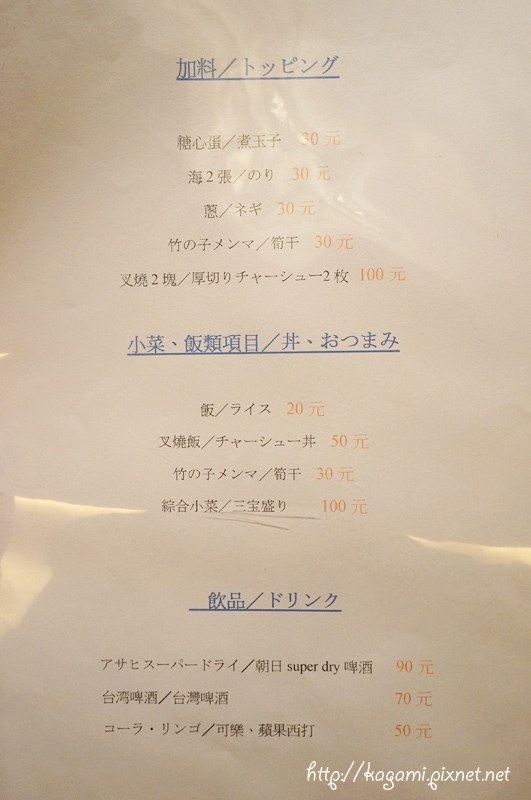 加料／トッピング
糖心蛋／煮玉子 30 元
海2張／のり 30 元
蔥／ネギ 30 元
竹の子メンマ／筍干 30 元
叉燒2塊／厚切りチャーシュー2枚 100 元
小菜、飯類項目／丼、おつまみ
飯／ライス 20 元
叉燒飯／チャーシュー丼 50 元
竹の子メンマ／筍干 30 元
綜合小菜／三宝盛り 100 元
飲品／ドリンク
アサヒスーパードライ／朝日 super dry 啤酒 90 元
台湾啤酒／台灣啤酒 70 元
コーラ・リンゴ／可樂、蘋果西打 50 元
http://kagami.pixnet.net